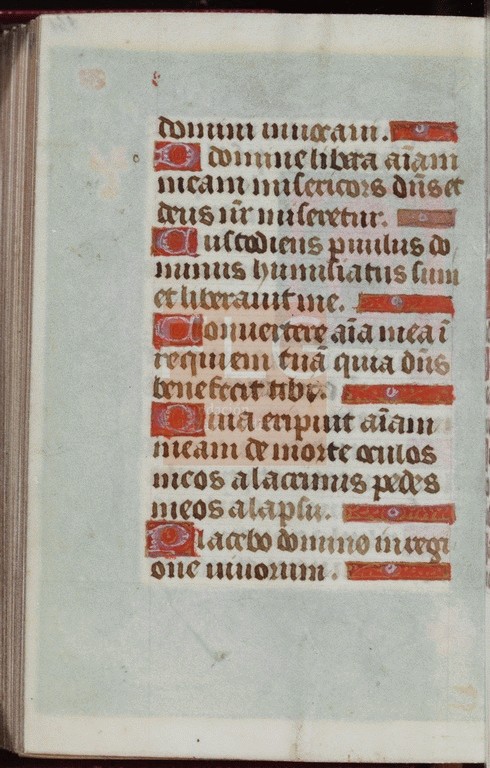 domini inuocaui.
O domine libera aīam
meam misericors dn̄s et
deus nr̄ miseretur.
Custodiens paruulos do
minus humiliatus sum
et liberauit me.
Conuertere aīa mea ī
requiem tuā quia dn̄s
benefecit tibi.
Quia eripuit aīam
meam de morte oculos
meos a lacrimis pedes
meos a lapsu.
Placebo domino in regi
one uiuorum.